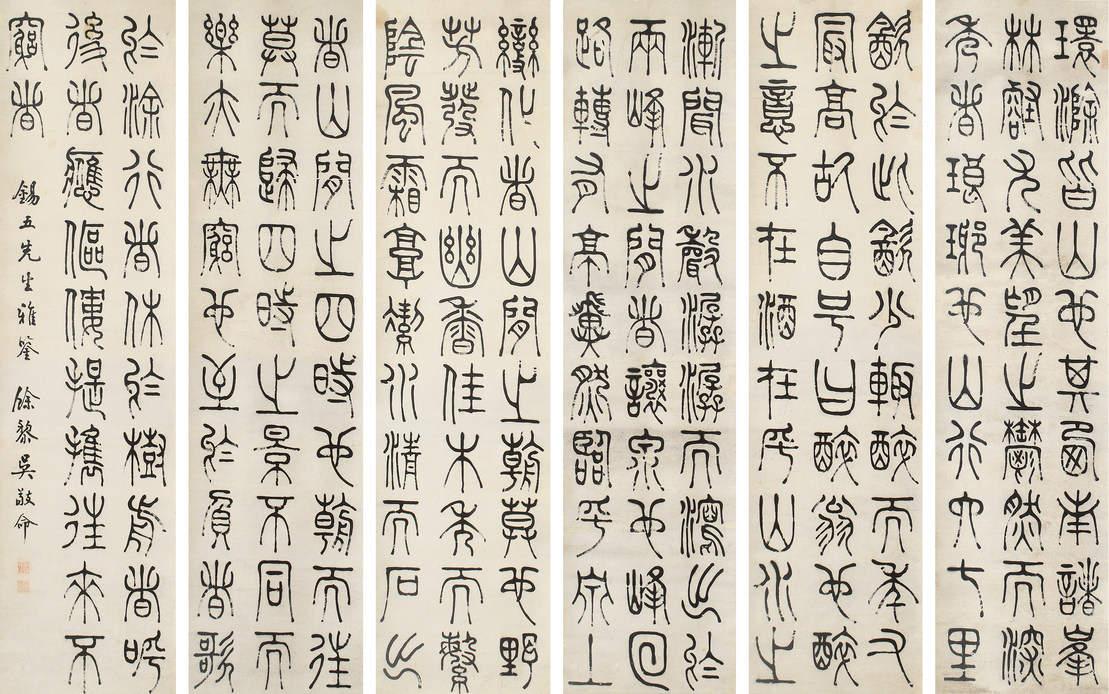 環滁皆山也其西南諸峯
林壑尤美望之鬱然而深
秀者琅琊也山行六七里
飲於此飲少輒醉而年又
最高故自号曰醉翁也醉
之意不在酒在乎山水之
漸聞水聲潺潺而瀉出於
兩峰之間者讓泉也峰回
路轉有亭翼然臨乎泉上
變化者山間之朝莫也野
芳發而幽香佳木秀而繁
陰風霜高潔水清而石出
者山間之四時也朝而往
莫而歸四時之景不同而
樂亦無窮也至於負者歌
於涂行者休於樹前者呼
後者應傴僂提攜往來不
窮者
錫五先生雅鑒 餘黎吳敬